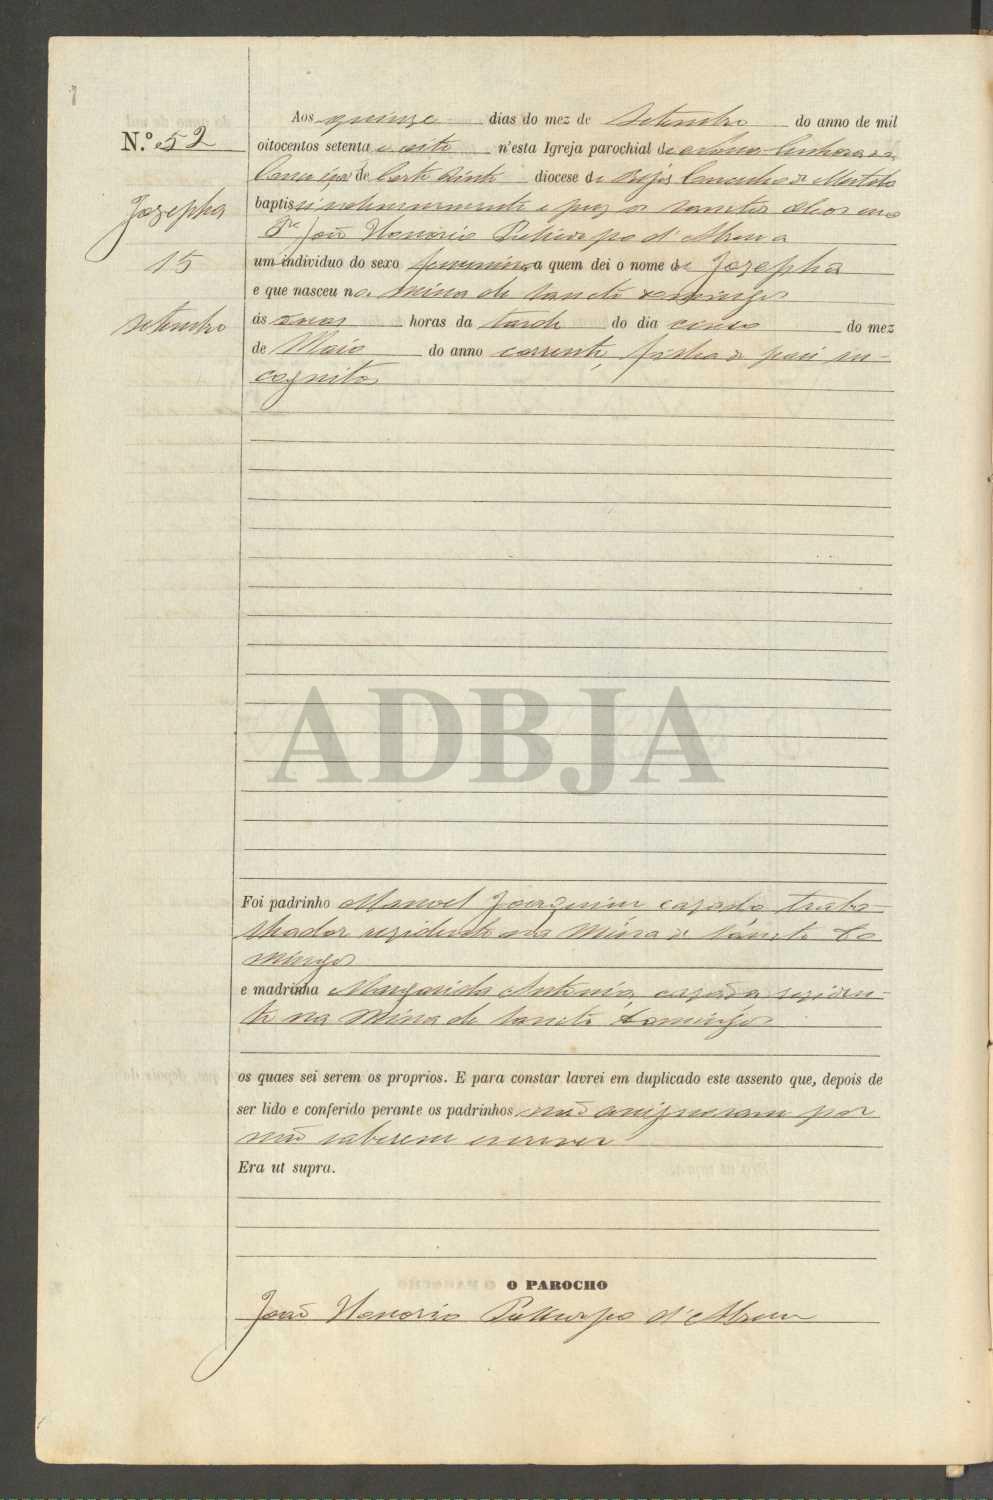 N.º 52
Jozepha
15
Setembro
Aos quinze dias do mez de Setembro do anno de mil
oitocentos setenta e oito n'esta Igreja parochial de Nossa Senhora da
Conceição de Corte Pinto diocese de Beja Concelho de Mertola
baptisei solemnemente e puz os sanctos oleos eu o
Pre João Honorio Policarpo d'Abreu a
um individuo do sexo femenino a quem dei o nome de Jozepha
e que nasceu na Mina de Sancto Domingos
ás duas horas da tarde do dia cinco do mez
de Maio do anno corrente, filha de pais in-
cognitos
ADBJA
Foi padrinho Manoel Joaquim cazado traba-
lhador rezidente na Mina de Sancto Do
mingos
e madrinha Margarida Antonia, cazada reziden-
te na Mina de Sancto Domingos
os quaes sei serem os proprios. E para constar lavrei em duplicado este assento que, depois de
ser lido e conferido perante os padrinhos não assignaram por
não saberem escrever
Era ut supra.
O PAROCHO
João Honorio Policarpo d'Abreu